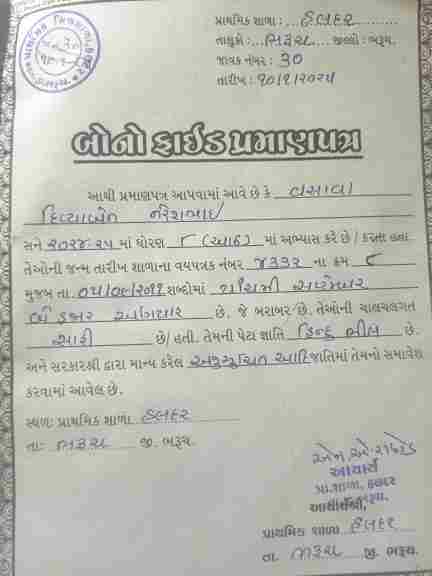 પ્રાથમિક શાળા : હલદર
તાલુકો : ભરૂચ જીલ્લો : ભરૂચ.
જાવક નંબર : 30
તારીખ : ૧૦/૧/૨૦૨૫
બોનો ફાઈડ પ્રમાણપત્ર
આથી પ્રમાણપત્ર આપવામાં આવે છે કે વસાવા
દિવ્યાબેન નરેશભાઇ
સને ૨૦૨૪-૨૫ માં ધોરણ ૮ (આઠ) માં અભ્યાસ કરે છે / કરતા હતા
તેઓની જન્મ તારીખ શાળાના વયપત્રક નંબર ૪૩૩૨ ના ક્રમ ૮
મુજબ તા. ૦૫/૦૯/૨૦૧૧ શબ્દોમાં પાંચમી સપ્ટેમ્બર
બે હજાર અગિયાર છે. જે બરાબર છે. તેઓની ચાલચલગત
સારી છે/ હતી. તેમની પેટા જ્ઞાતિ હિન્દુ ભીલ છે.
અને સરકારશ્રી દ્વારા માન્ય કરેલ અનુસૂચિત આદિજાતિમાં તેમનો સમાવેશ
કરવામાં આવેલ છે.
સ્થળ: પ્રાથમિક શાળા હલદર
તા: ભરૂચ જી. ભરૂચ.
આચાર્ય
પ્રા.શાળા, હલદર
આચાર્યશ્રી,
પ્રાથમિક શાળા હલદર
તા. ભરૂચ જી. ભરૂચ.